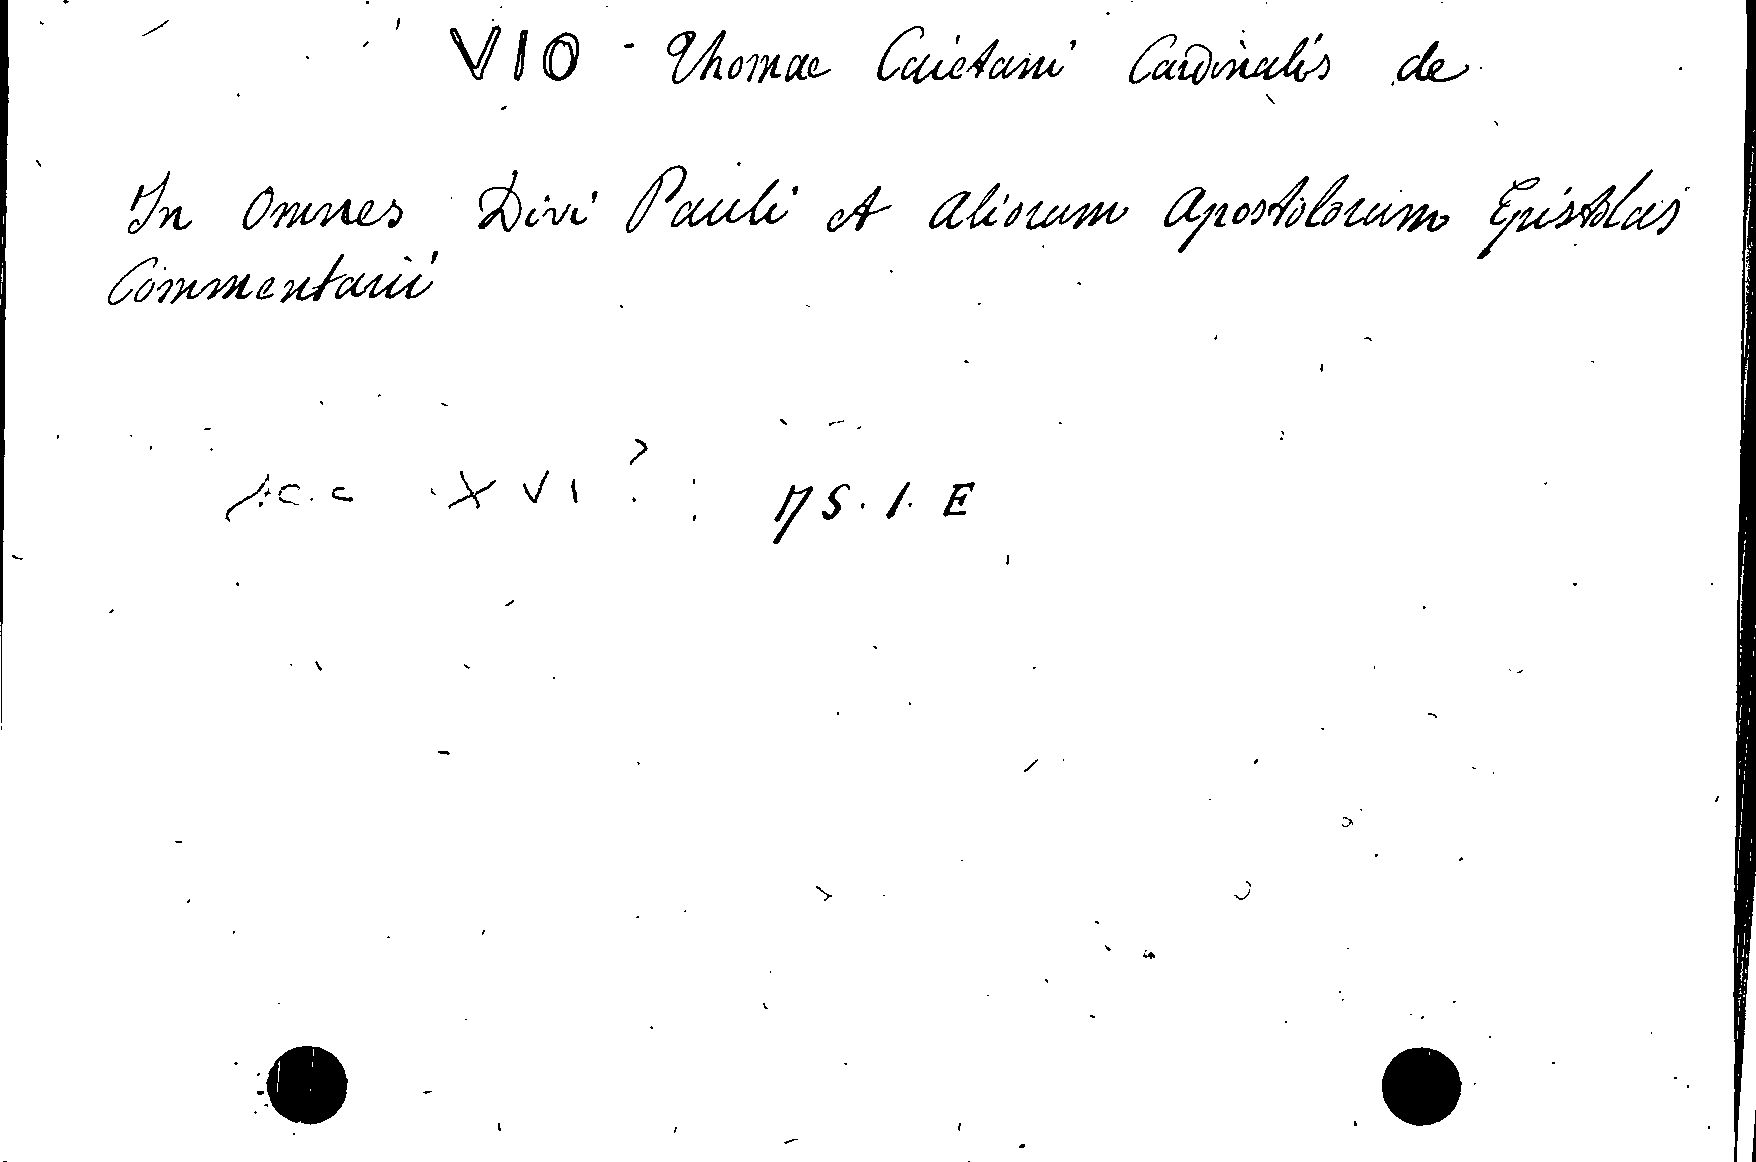 VIO - Thomae Caietani Cardinalis de
In Omnes Divi Pauli et Aliorum Apostolorum Epistolas
Commentarii
XVI ? : MS. I. E